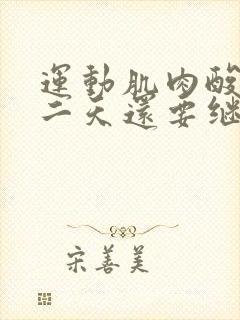 運動肌肉酸
二天還要继
宋善美